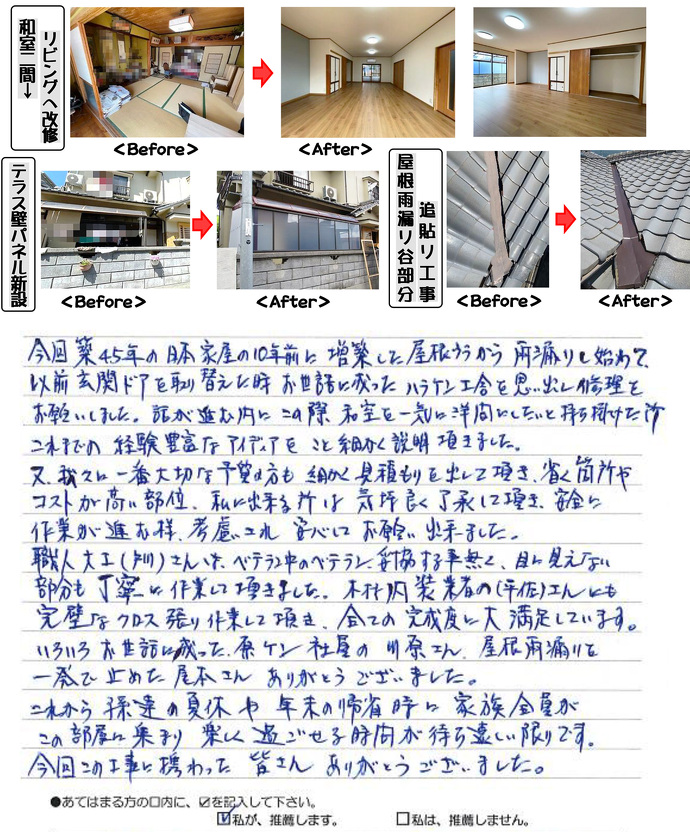 和室二間→
リビングへ改修
<Before>
<After>
テラス壁パネル新設
<Before>
<After>
屋根雨漏り谷部分
追貼り工事
<Before>
<After>
今回築45年の日本家屋の10年前に増築した屋根うらから雨漏りし始めて、
以前玄関ドアを取り替えた時お世話に成ったハラケン工舎を思い出し修理を
お願いしました。話が進む内にこの際和室を一気に洋間にしたいと持ち掛けた所
これまでの経験豊富なアイディアをこと細かく説明頂きました。
又、我々に一番大切な予算の方も細かく見積もりを出して頂き、省く箇所や
コストが高い部位、私に出来る所は気坪良く了承して頂き、安全に
作業が進む様、考慮され安心してお願い出来ました。
職人大工さんは、ベテラン中のベテラン、妥協する事無く、目に見えない
部分も丁寧に作業して頂きました。内装業者の(平佐)さんにも
完璧なクロス張り作業して頂き、全ての完成度に大満足しています。
いろいろお世話に成った、原ケン社屋の川原さん、屋根雨漏りを
一発で止めた屋本さんありがとうございました。
これから孫達の夏休や年末の帰省時に家族全員が
この部屋に集まり楽しく過ごせる時間が待ち遠しい限りです。
今回この工事に携わった皆さんありがとうございました。
●あてはまる方の口内に、☑を記入して下さい。
☑私が、推薦します。 □私は、推薦しません。